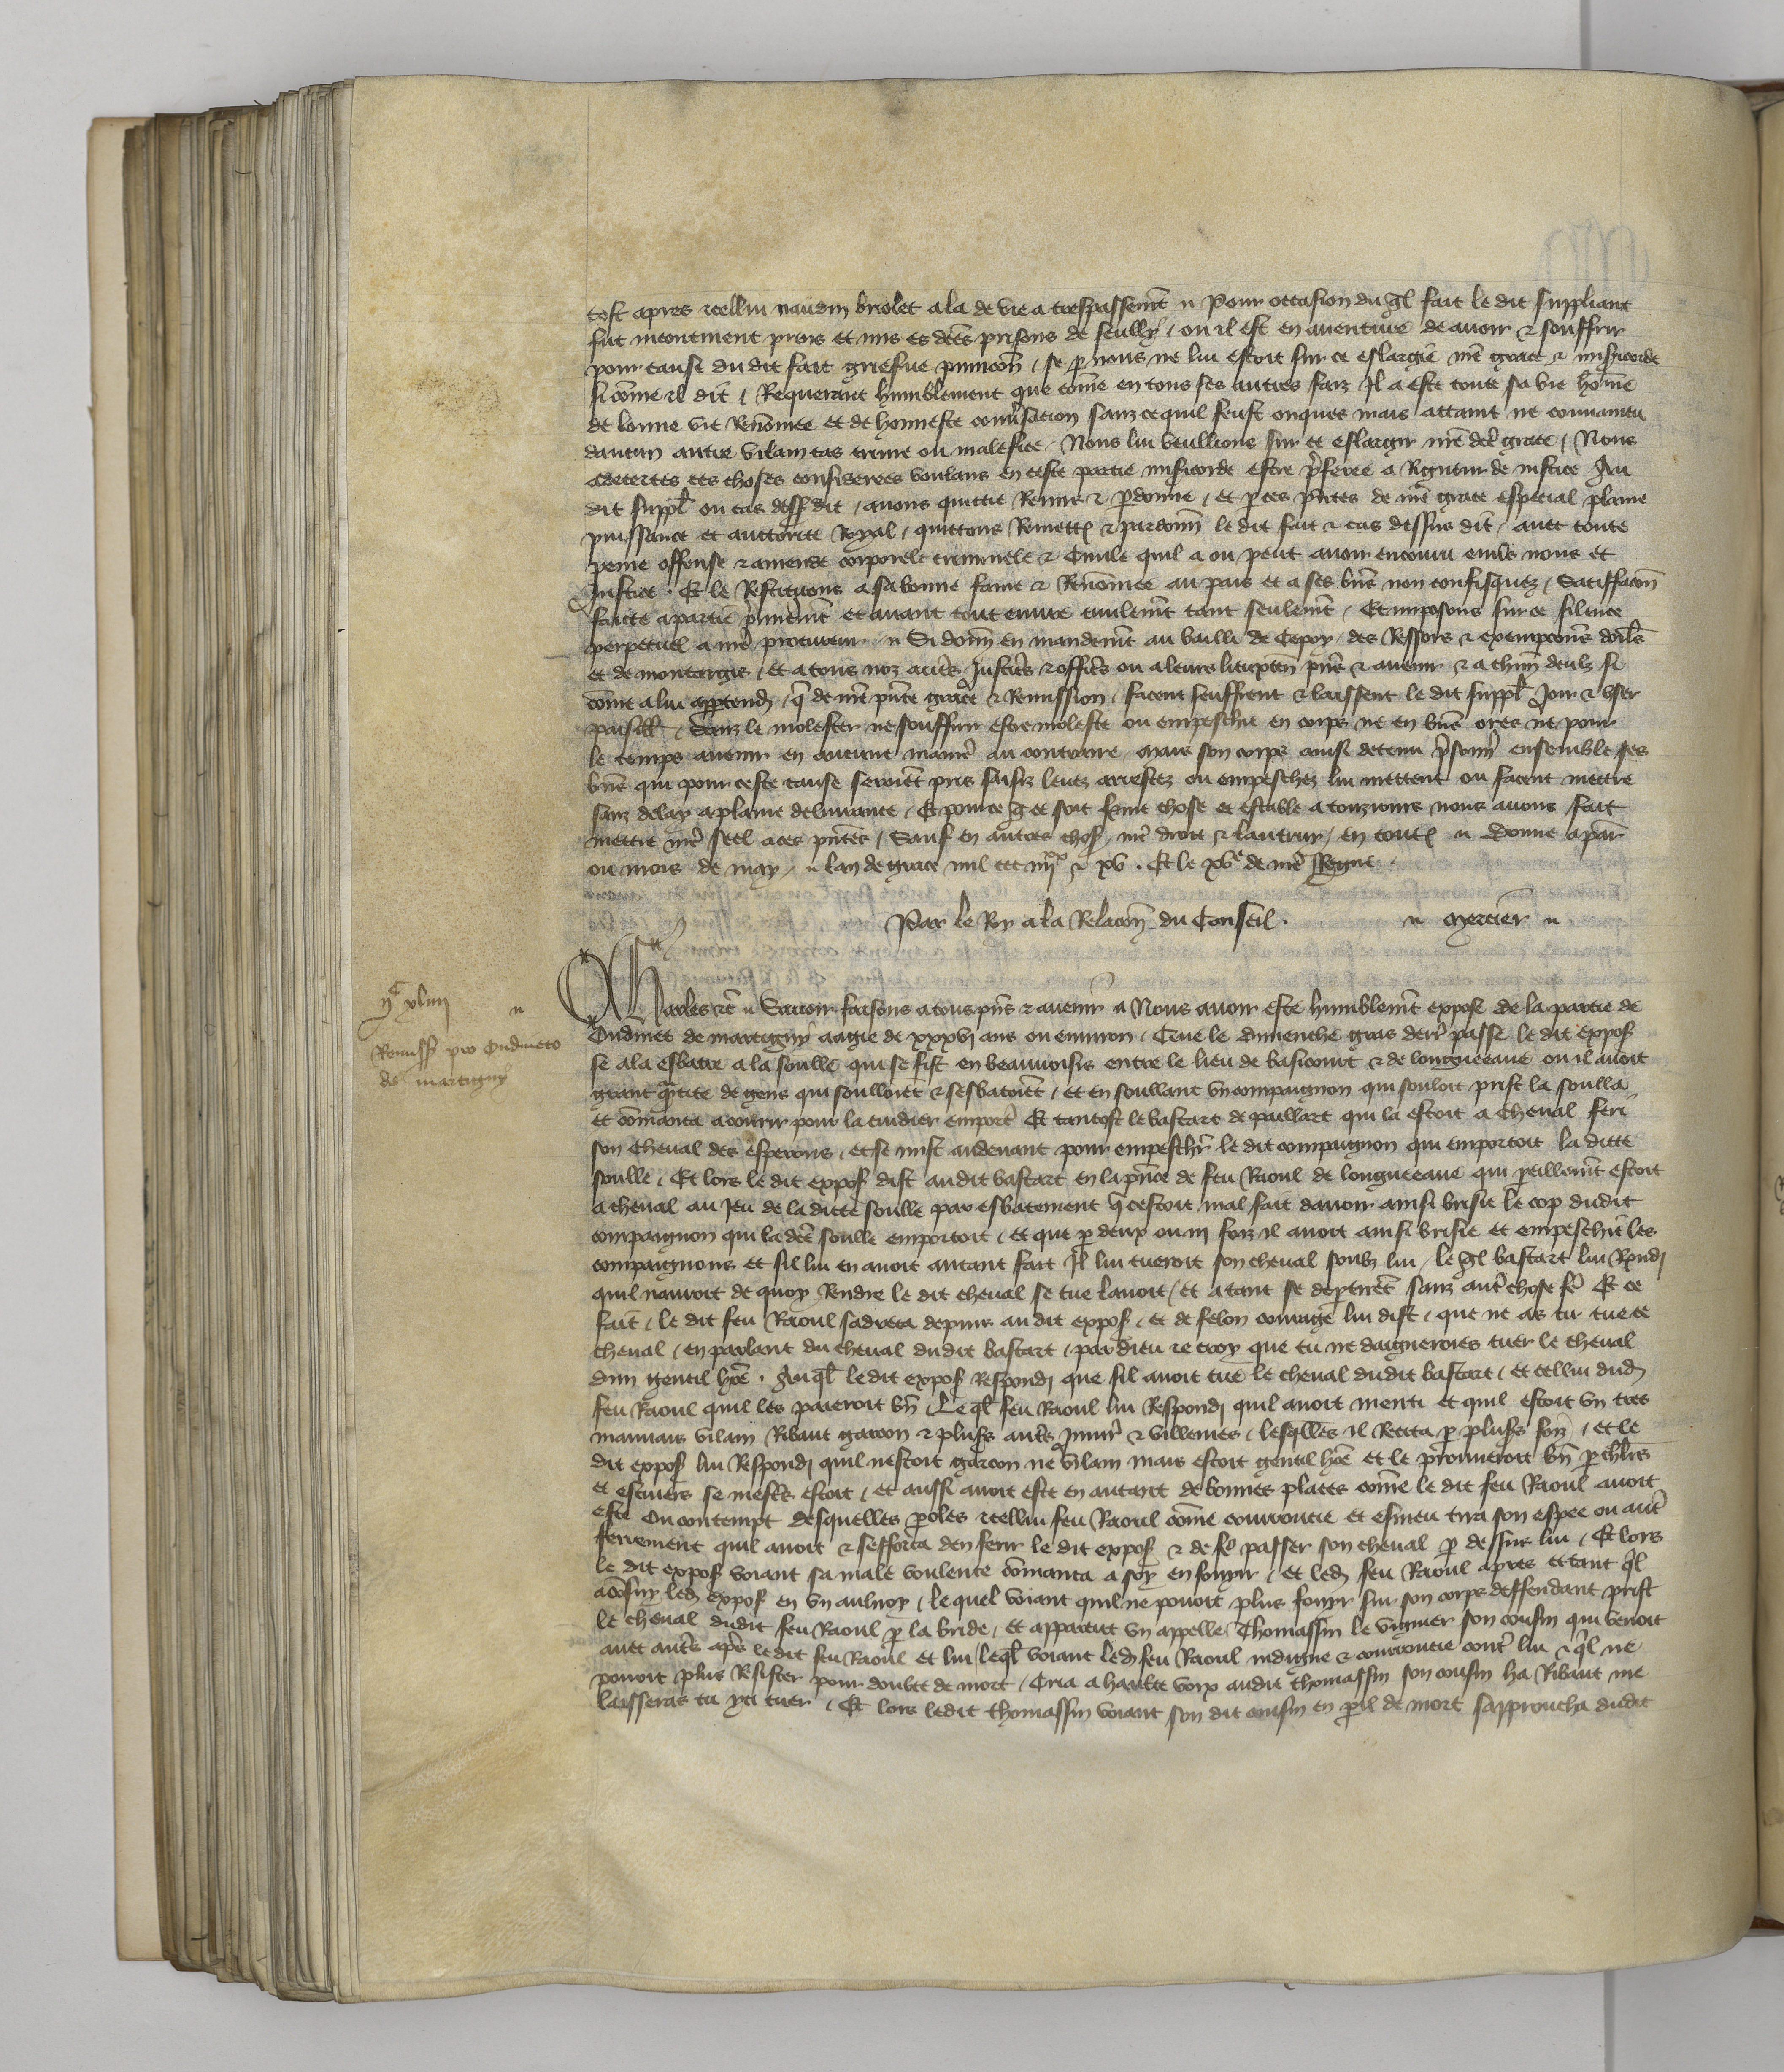 tost apres icellui naudin briolet ala de vie a trespassemt Pour occasion du ql fait le dit suppliant
fut incontinent prins et mis es dces prisons de seully / ou il est en aventure de avoir & souffrir
pour cause du dit fait griefve punicon / se p nous ne lui estoit sur ce eslargie nre grace & misicorde
si come il dit / Requerant humblement que come en tous ses autres faiz Il a este toute sa vie home
de bonne vie Renomee et de honneste conversation sanz ce quil feust onques mais attaint ne convaincu
daucun autre vilain cas crime ou malefice Nous lui veullions sur ce eslargir nre dce grace / Nous
adecertes ces choses considerees voulans en ceste partie misicorde estre pferee a Rigueur de justice Au
dit suppl ou cas dessusdit / avons quittie Remis & pdonne / et p ces pntes de nre grace especial plaine
puissance et auctorite Royal / quittons Remett & pardonn le dit fait & cas dessus dit / avec toute
peine offense & amende corporele criminele & Civile quil a ou peut avoir encouru envs nous et
Justice . Et le Restituons a sa bonne fame & Renomee au pais et a ses bns non confisquez / Satisfacon
faicte a partie pmieremt et avant tout euvre civilemt tant seulemt / Et imposons sur ce silence
perpetuel a nre procureur Si donn en mandemt au bailli de Cepoy des Ressors & exempcions dorls
et de montargis / et a tous noz autes Justicrs & officrs ou a leurs lieuxten pns & avenir & a chun deulx si
come a lui apptendr / q de nre pnte grace & Remission / facent seuffrent & laissent le dit suppl Joir & user
paisibl / Sanz le molester ne souffrir estre moleste ou empeschie en corps ne en bns ores ne pour
le temps avenir en aucune manie au contraire mais son corps ainsi detenu prisonnr ensemble ses
bns qui pour ceste cause seroient pris saisiz levez arrestez ou empeschez lui mettent ou facent mettre
sanz delay a plaine delivrance / Et pour ce q ce soit ferme chose et estable a touziours nous avons fait
mettre nre seel a ces pntes / Sauf en autres chos nre droit & lautruy / en tout Donne a par
ou mois de may lan de grace mil ccc iiijxx & xv . Et le xve de nre Regne
Par le Roy a la Relacon du Conseil . mercier
ijC xliiij
Remiss pro Oudineto
de martigny
Charles etc Savoir faisons a tous pns & avenir Nous avoir este humblemt expose de la partie de
Oudinet de martigny aagie de xxxvi ans ou environ / Que le dimenche gras derr passe le dit expos
se ala esbatre a la soulle qui se fist en beauvoisis entre le lieu de basicourt & de longueeaue ou il avoit
grant qtite de gens qui soulloient & sesbatoient / et en soullant un compaignon qui souloit prist la soulla
et comanca a courir pour la cuidier emport Et tantost le bastart de paillart qui la estoit a cheval feri
son cheval des esperons / et se mist audevant pour empeschr le dit compaignon qui emportoit la ditte
soulle / Et lors le dit expos dist audit bastart en la pnce de feu Raoul de longueeaue qui peillemt estoit
a cheval au Jeu de la ditte soulle par esbatement q cestoit mal fait davoir ainsi brisie le cop dudit
compaignon qui la dce soulle emportoit / et que p deux ou iij foiz il avoit ainsi brisie et empeschie les
compaignons et sil lui en avoit autant fait Il lui tueroit son cheval soubz lui / le ql bastart lui Rendi
quil nauroit de quoy Rendre le dit cheval se tue lavoit / et atant se deptirent sanz autchose fe Et ce
fait / le dit feu Raoul sadreca depuis au dit expos / et de felon courage lui dist / que ne as tu tue ce
cheval / en parlant du cheval dudit bastart / par dieu je croy que tu ne daigneroies tuer le cheval
dun gentil hoe . Auql le dit expos Respondi que sil avoit tue le cheval dudit bastart / et cellui dud
feu Raoul quil les paieroit bn / Le ql feu Raoul lui Respondi quil avoit menti et quil estoit un tres
mauvais vilain Ribaut garcon & pluss auts Injurs & villenies / lesqlles il Recita p pluss foiz / et le
dit expos lui Respondi quil nestoit garcon ne vilain mais estoit gentil hoe et le prouveroit bn p chlrs
et escuiers se mest estoit / et aussi avoit este en autant de bonnes places come le dit feu Raoul avoit
este Ou contempt desquelles poles icellui feu Raoul come courroucie et esmeu tira son espee ou aut
ferrement quil avoit & sefforca den ferir le dit expos & de fe passer son cheval p dessur lui / Et lors
le dit expos voiant sa male voulente comanca a soy en fouyr / et led feu Raoul apres et tant ql
acosuy led expos en un aulnoy / le quel voiant quil ne povoit plus fouyr sur son corps deffendant prist
le cheval dudit feu Raoul p la bride / et apparcut un appelle Thomassin le viguier son cousin qui venoit
avec auts aps ledit feu Raoul et lui / leql voiant led feu Raoul indigne & courroucie cont lui & ql ne
povoit plus Resister pour doubte de mort / Cria a haulte voix audit thomassin son cousin ha Ribaut me
laisseras tu yci tuer / Et lors ledit thomassin voiant son dit cousin en pil de mort sapproucha dudit